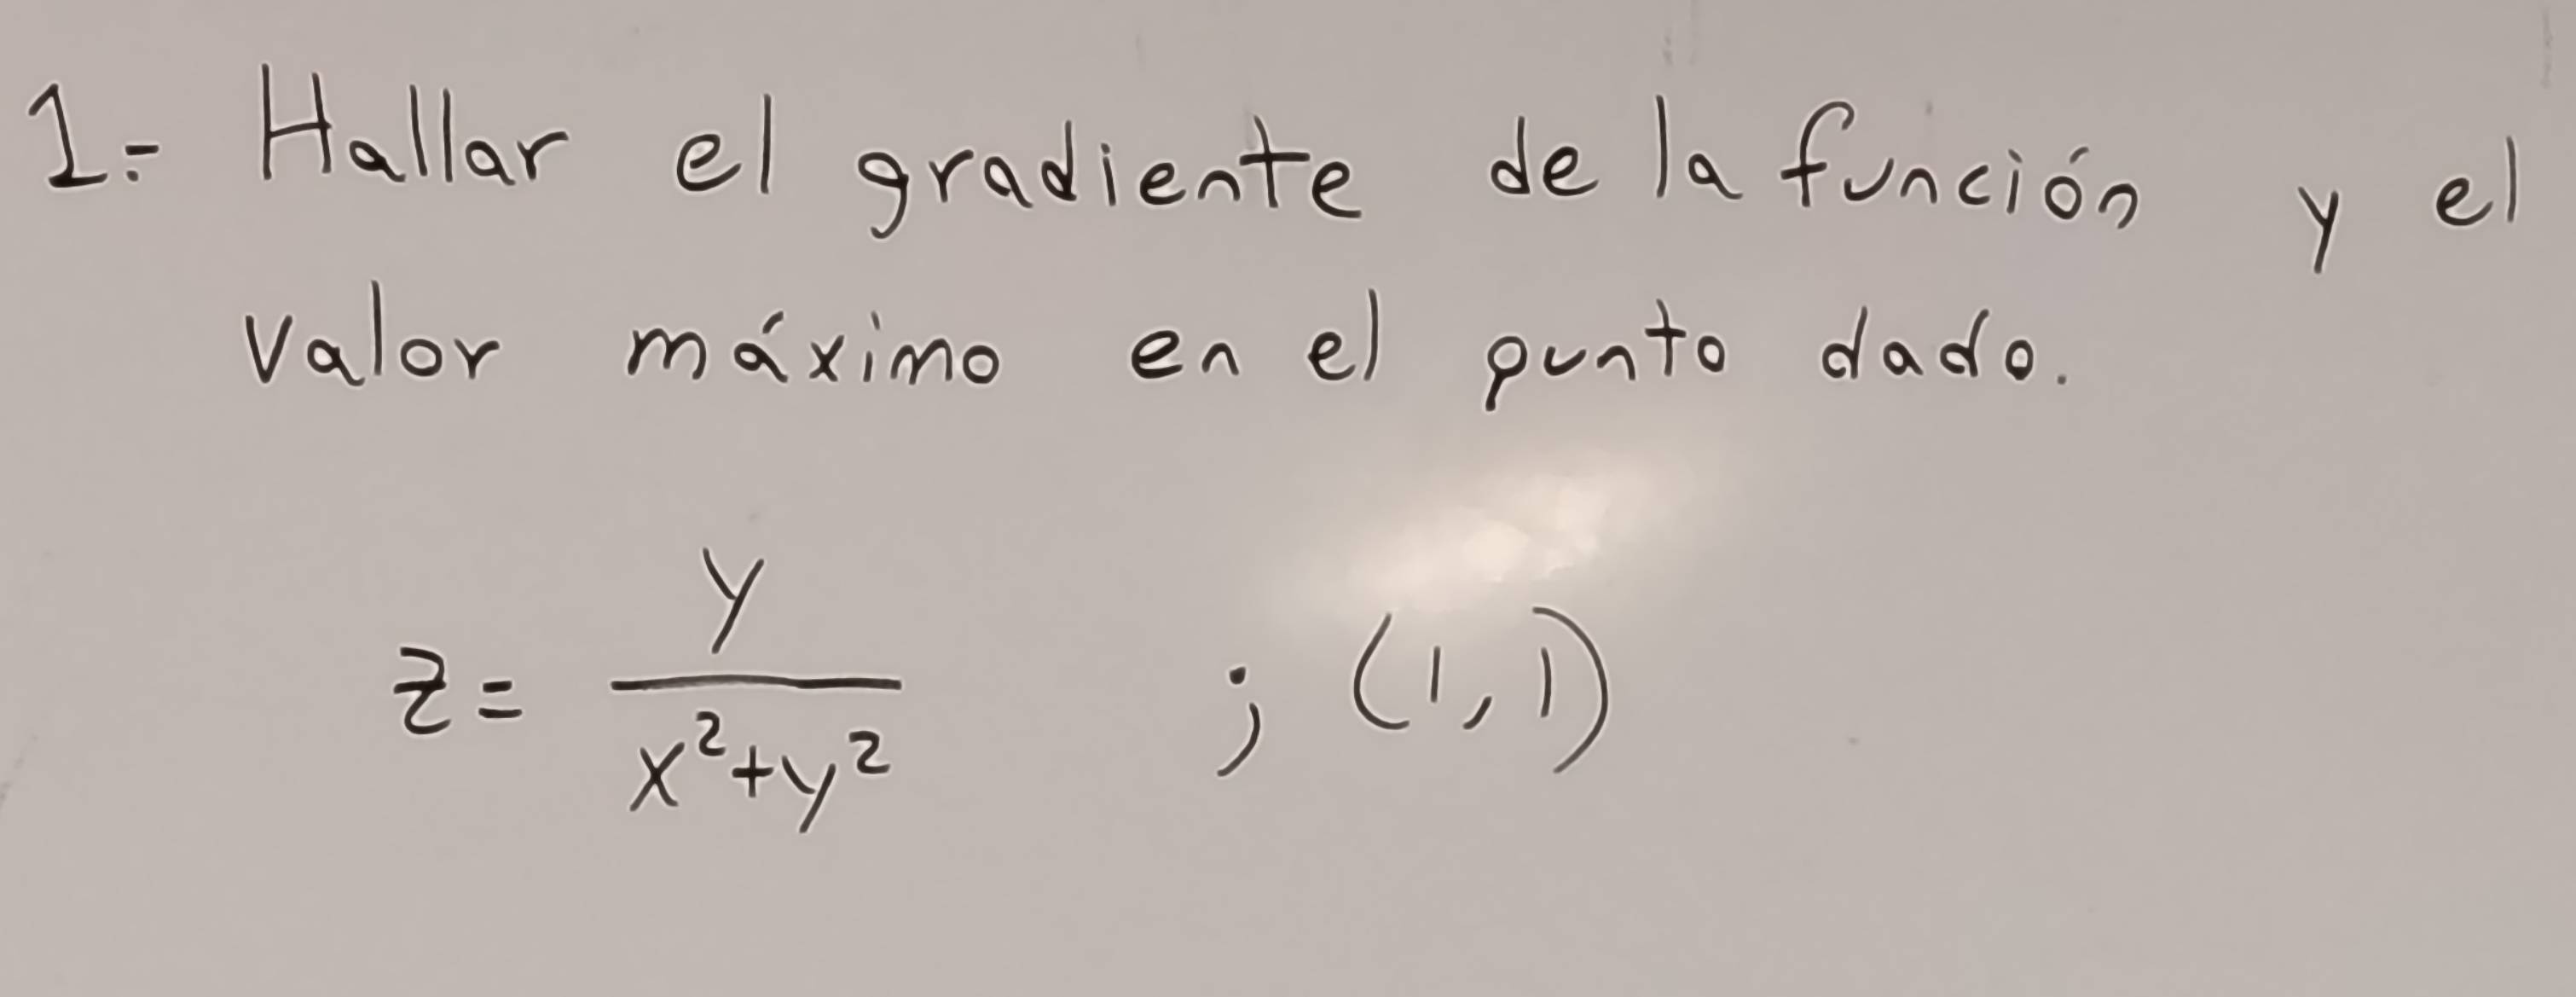 1.- Hallar el gradiente de la función y el
valor máximo en el punto dado.
z = y / (x² + y²) ; (1, 1)